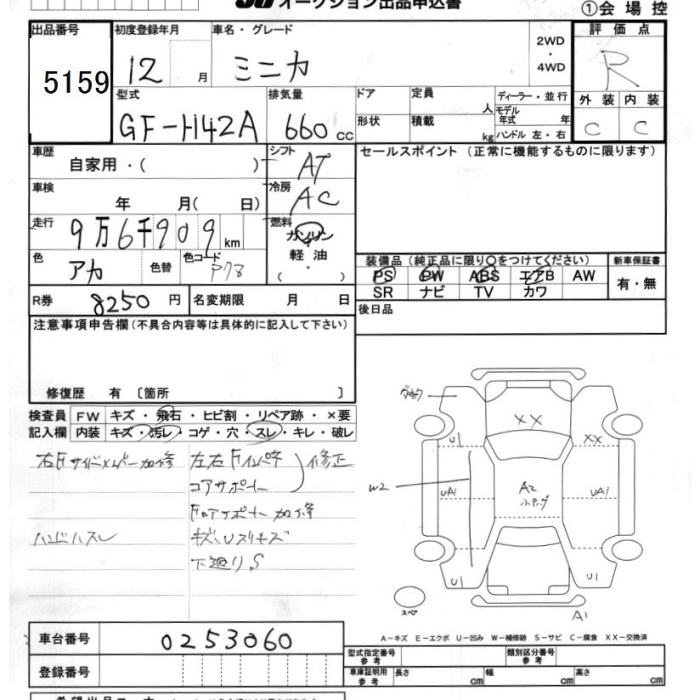 オークション出品申込書
①会場控
出品番号 初度登録年月 車名・グレード 評価点
5159 12 月 ミニカ 2WD・4WD R
型式 排気量 ドア 定員 人 ディーラー・並行 外装 内装
GF-H42A 660 cc 形状 積載 kg モデル年式 年 ハンドル 左・右 C C
車歴 シフト セールスポイント (正常に機能するものに限ります)
自家用・( ) AT
車検 年 月 ( 日) 冷房 AC
走行 9万6千909 km 燃料 ガソリン
色 アカ 色替 色コード P78 軽油 ・( )
装備品(純正品に限り〇をつけてください) 新車保証書
PS PW ABS エアB AW 有・無
SR ナビ TV カワ
R券 8250 円 名変期限 月 日 後日品
注意事項申告欄(不具合内容等は具体的に記入して下さい)
修復歴 有 〔箇所 〕
検査員 FW キズ・飛石・ヒビ割・リペア跡・×要
記入欄 内装 キズ・汚レ・コゲ・穴・スレ・キレ・破レ
コアサポート
修正
ハンドルスレ
下廻りS
XX
U1 XX
W2 UA1 A2 UA1
U1 U1
スペア A1
A-キズ E-エクボ U-凹み W-補修跡 S-サビ C-腐食 XX-交換済
車台番号 0253060
登録番号
型式指定番号 参考 類別区分番号 参考
車庫証明用 参考 長さ cm 幅 cm 高さ cm